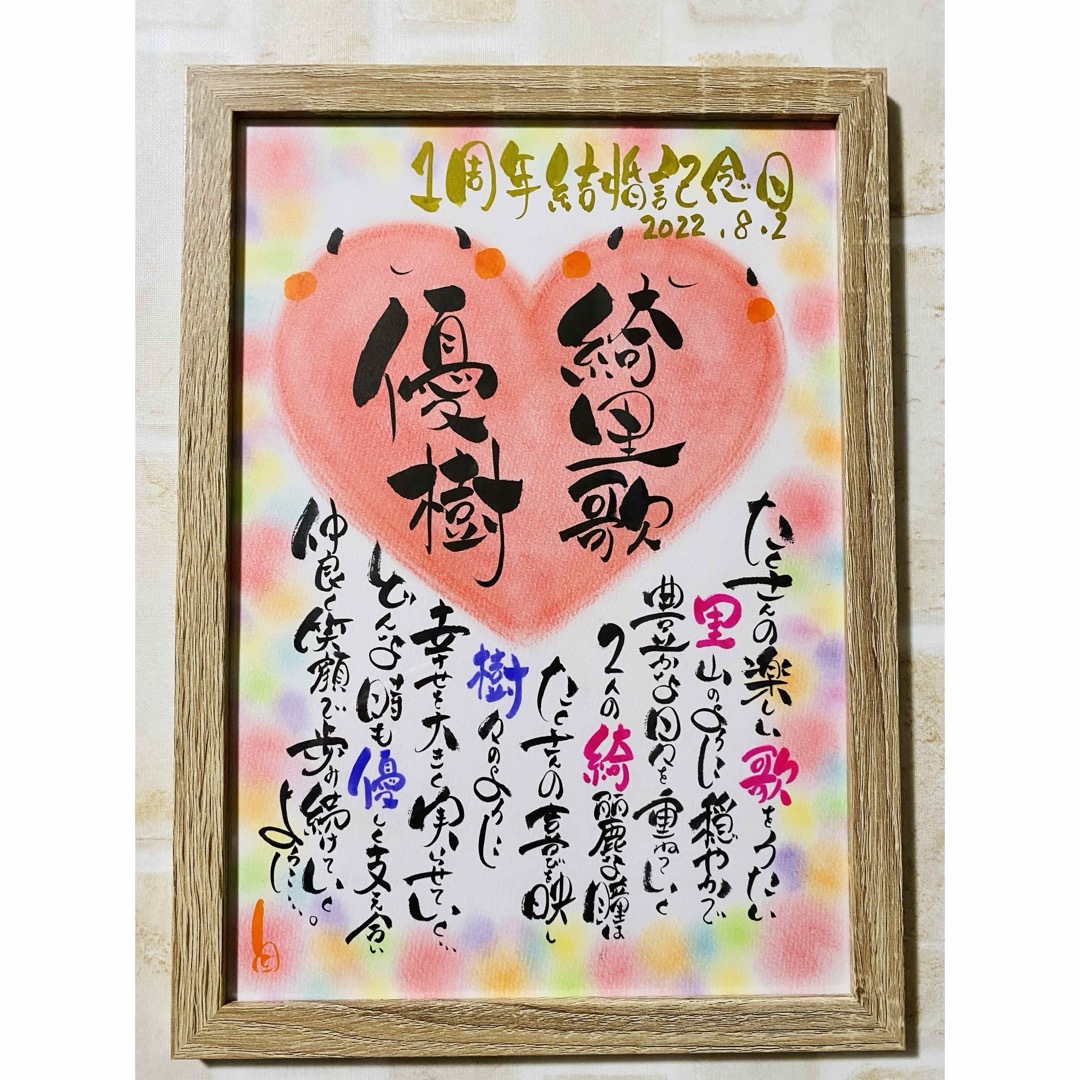 1周年結婚記念日
2022.8.2
綺里歌
優樹
たくさんの楽しい歌をうたい
里山のように穏やかで
豊かな日々を重ねていく
2人の綺麗な瞳は
たくさんの喜びを映し
樹々のように
幸せを大きく実らせていく…
どんな時も優しく支え合い
仲良く笑顔で歩み続けていく
ように…。